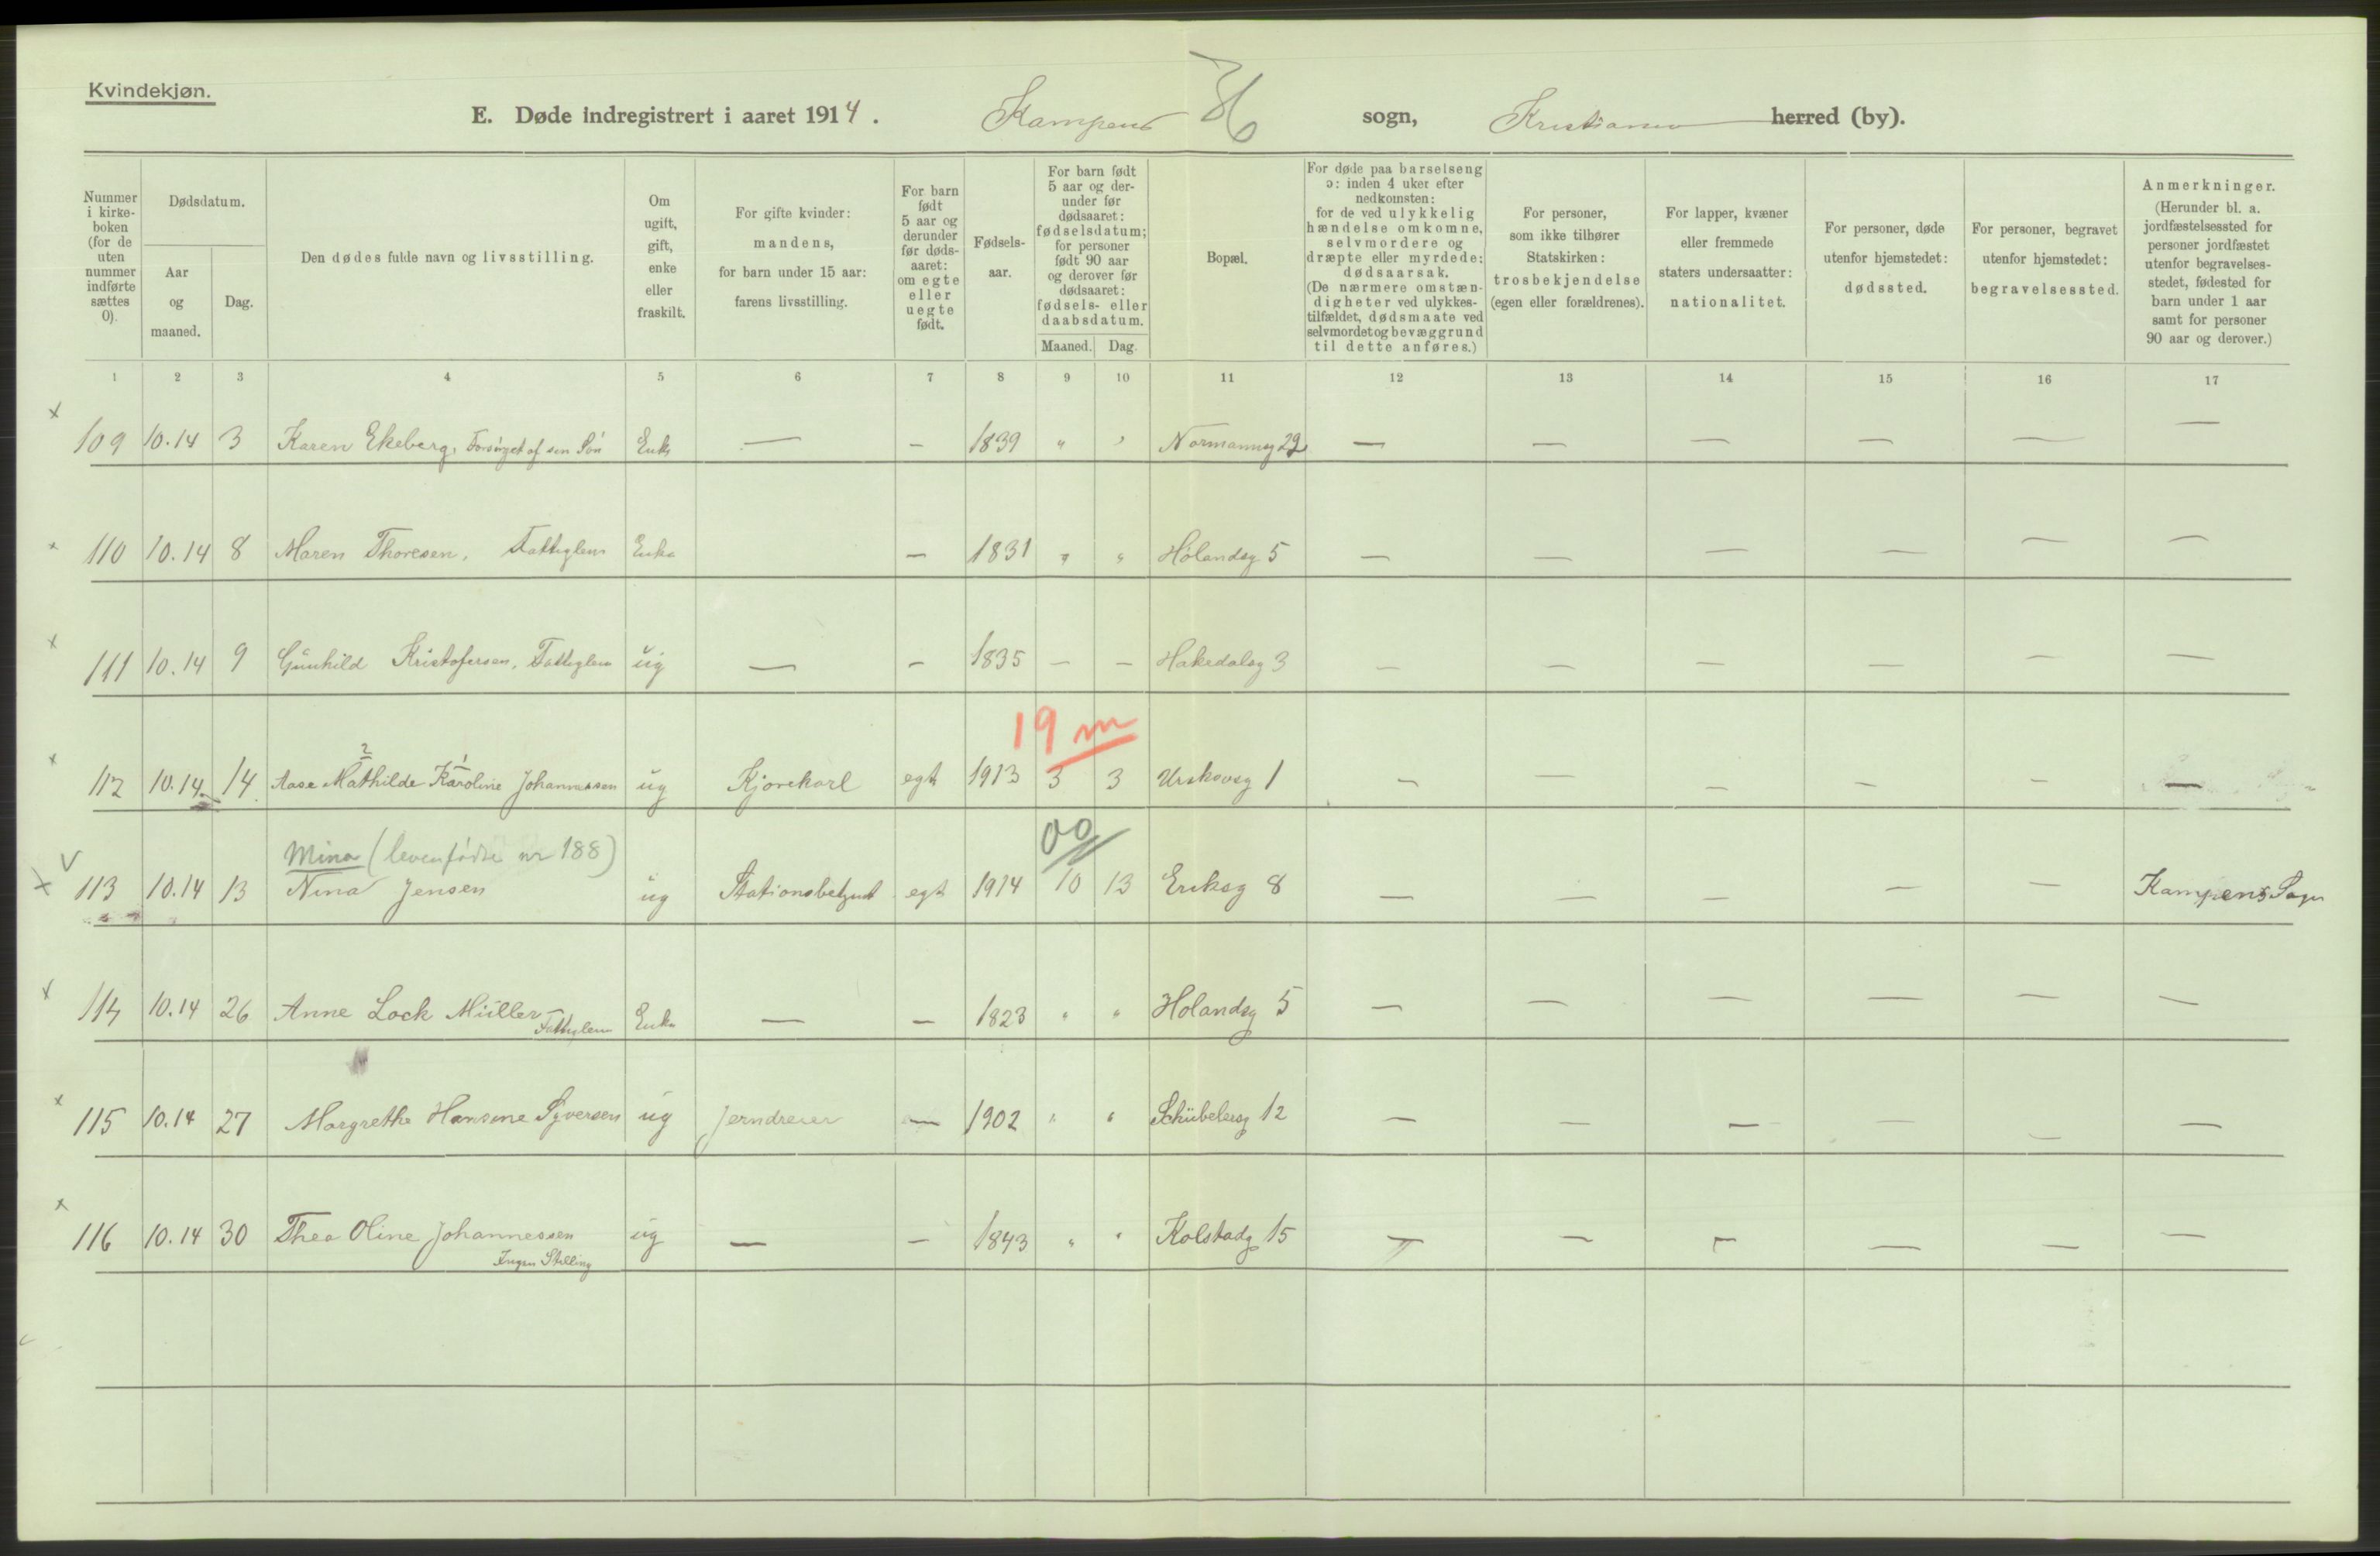 Kvindekjøn.
E. Døde indregistrert i aaret 1914. Kampens sogn, Kristiania herred (by).
Nummer i kirke-boken (for de uten nummer indførte sættes 0).
Dødsdatum.
Aar og maaned.
Dag.
Den dødes fulde navn og livsstilling.
Om ugift, gift, enke eller fraskilt.
For gifte kvinder: mandens, for barn under 15 aar: farens livsstilling.
For barn født 5 aar og derunder før døds-aaret: om egte eller uegte født.
Fødsels-aar.
For barn født 5 aar og der-under før dødsaaret: fødselsdatum; for personer født 90 aar og derover før dødsaaret: fødsels- eller daabsdatum.
Maaned. Dag.
Bopæl.
For døde paa barselseng ɔ: inden 4 uker efter nedkomsten: for de ved ulykkelig hændelse omkomne, selvmordere og dræpte eller myrdede: dødsaarsak. (De nærmere omstæn-digheter ved ulykkes-tilfældet, dødsmaate ved selvmordet og bevæggrund til dette anføres.)
For personer, som ikke tilhører Statskirken: trosbekjendelse (egen eller forældrenes).
For lapper, kvæner eller fremmede staters undersaatter: nationalitet.
For personer, døde utenfor hjemstedet: dødssted.
For personer, begravet utenfor hjemstedet: begravelsessted.
Anmerkninger. (Herunder bl. a. jordfæstelsessted for personer jordfæstet utenfor begravelses-stedet, fødested for barn under 1 aar samt for personer 90 aar og derover.)
1 2 3 4 5 6 7 8 9 10 11 12 13 14 15 16 17
109 10.14 3 Karen Ekeberg, Forsørget af sen Søn Enke — — 1839 " " Normannsg 29 — — — — — —
110 10.14 8 Maren Thoresen, Fattiglem Enke — 1831 " " Hølandsg 5 — — — — — —
111 10.14 9 Gunhild Kristofersen, Fattiglem ug — — 1835 — — Hakedalsg 3 — — — — — —
19 m
2 1
112 10.14 14 Aase Mathilde Karoline Johannessen ug Kjørekarl egt 1913 3 3 Urskovsg 1 — — — — — —
Mina (levenfødte nr 188) 00
113 10.14 13 Nina Jensen ug Stationsbetjent egt 1914 10 13 Eriksg 8 — — — — — Kampens Sogn
114 10.14 26 Anne Lock Müller Fattiglem Enke — — 1823 " " Hølandsg 5 — — — — — —
115 10.14 27 Margrethe Hansine Syversen ug Jerndreier — 1902 " " Schübelersg 12 — — — — — —
116 10.14 30 Thea Oline Johannessen ug — — 1843 " " Kolstadg 15 — — — — — —
Ingen Stilling